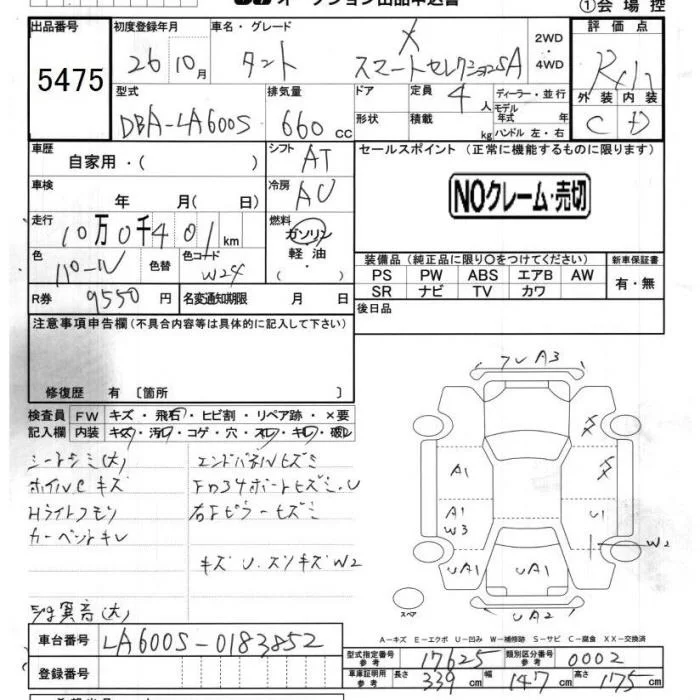 オークション出品申込書
①会場控
出品番号 初度登録年月 車名・グレード 2WD・4WD 評価点
5475 26 10月 タント X スマートセレクションSA
外装 内装
C D
型式 排気量 ドア 定員 4人 ディーラー・並行
DBA-LA600S 660cc 形状 積載 kg モデル年式 年 ハンドル 左・右
車歴 自家用・( ) シフト AT セールスポイント (正常に機能するものに限ります)
車検 年 月( 日) 冷房 AC NOクレーム・売切
走行 10万0千401km 燃料 ガソリン 軽油 ・( )
色 パール 色替 色コード W24 装備品(純正品に限り○をつけてください) 新車保証書
PS PW ABS エアB AW 有・無
SR ナビ TV カワ
R券 9550円 名変通知期限 月 日 後日品
注意事項申告欄(不具合内容等は具体的に記入して下さい)
修復歴 有 〔箇所 〕
検査員 FW キズ・飛石・ヒビ割・リペア跡・×要
記入欄 内装 キズ・汚レ・コゲ・穴・スレ・キレ・破レ
シートシミ(大) エンドパネルヒズミ
ホイルC キズ
Hライトクモリ 右Fピラーヒズミ
カーペントキレ
キズ U.スリキズ W2
異音(大)
フレA3
A1
A1
W3
U1
W2
UA1 UA1
UA2
スペア
A-キズ E-エクボ U-凹み W-補修跡 S-サビ C-腐食 XX-交換済
車台番号 LA600S-0183852
型式指定番号 参考 17625 類別区分番号 参考 0002
登録番号 車庫証明用 参考 長さ 339cm 幅 147cm 高さ 175cm